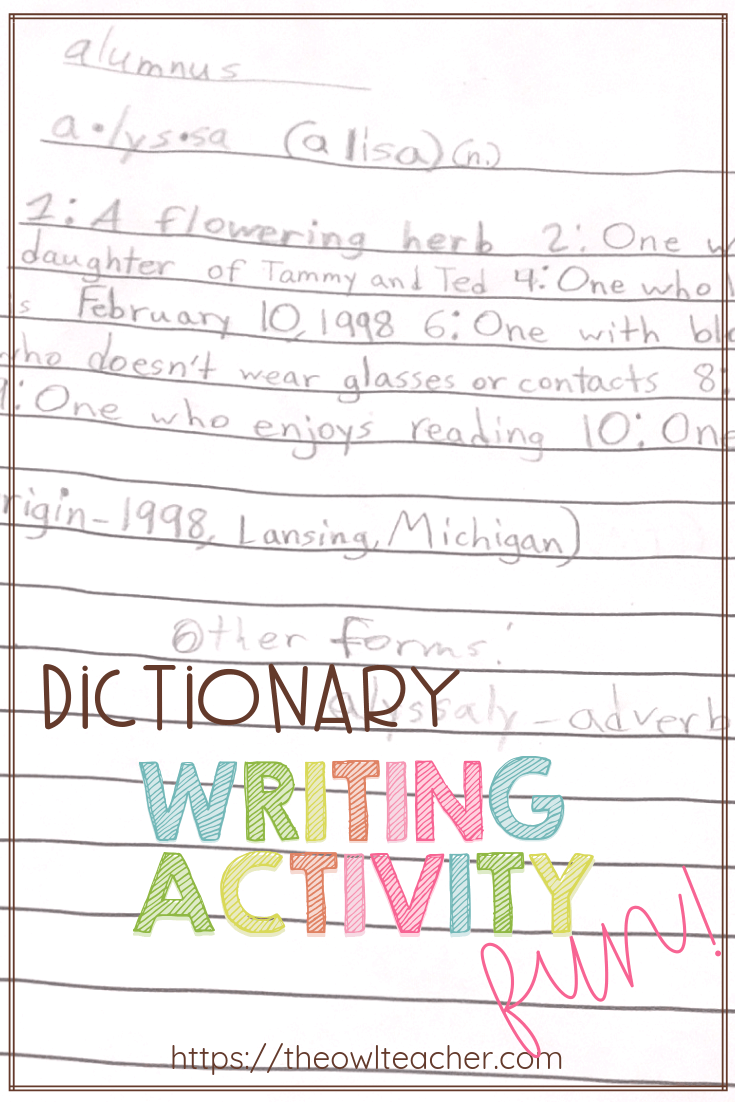 alumnus
a•lys•sa (a lisa) (n.)
1: A flowering herb 2: One
daughter of Tammy and Ted 4: One who
February 10, 1998 6: One with
who doesn't wear glasses or contacts 8:
9: One who enjoys reading 10: One
rigin-1998, Lansing, Michigan)
Other forms:
alyssaly - adverb
DiCTiONARY
WRITING
ACTIVITY
fun!
https://theowlteacher.com